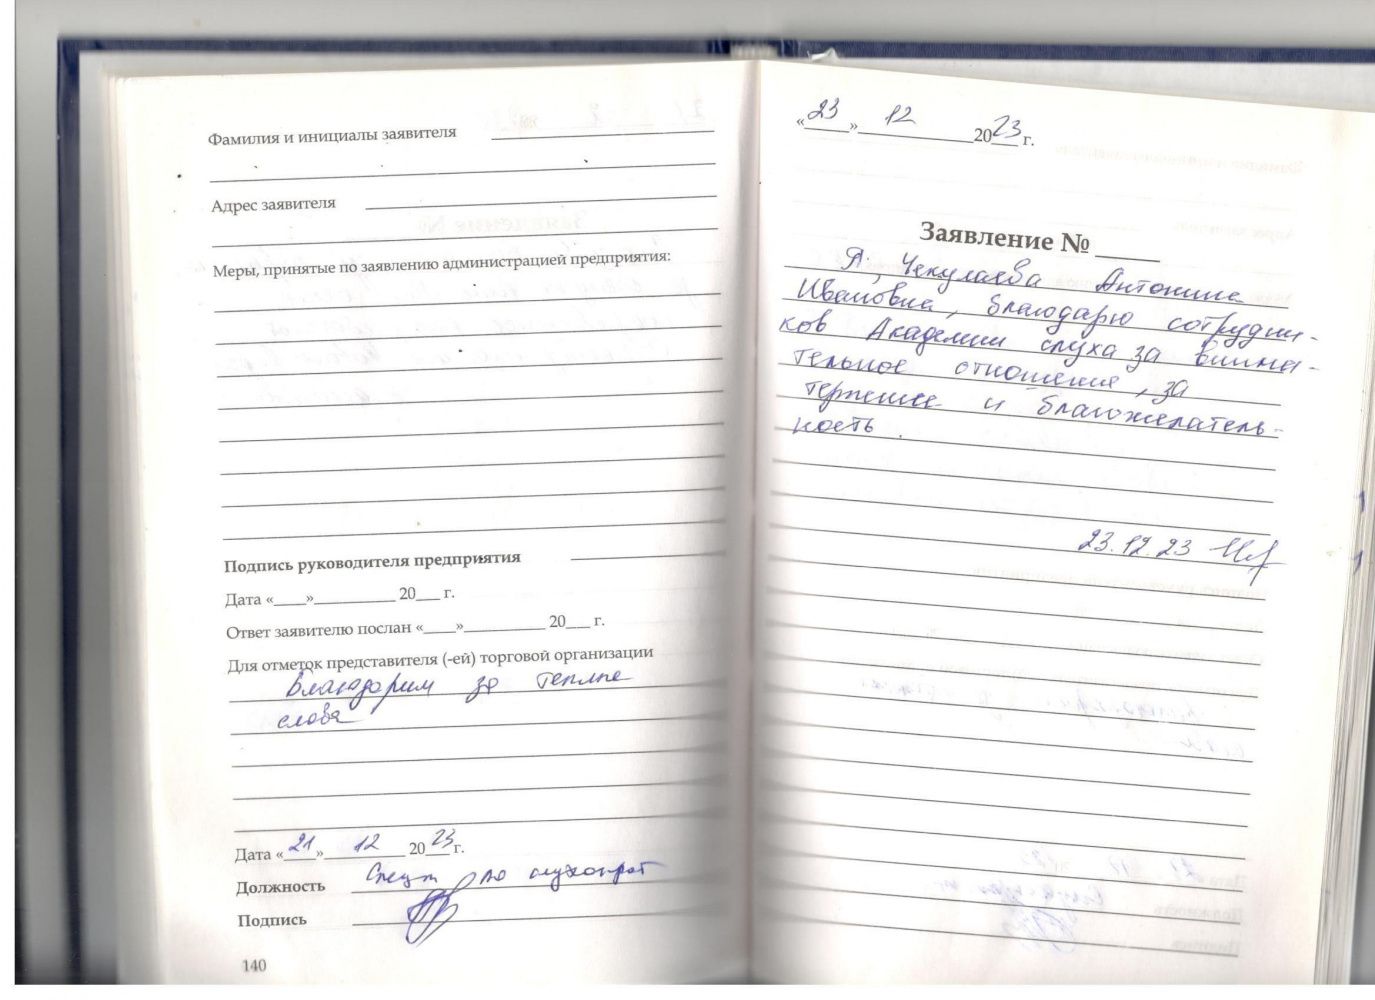 Фамилия и инициалы заявителя
Адрес заявителя
Меры, принятые по заявлению администрацией предприятия:
Подпись руководителя предприятия
Дата «____»__________ 20___ г.
Ответ заявителю послан «____»__________ 20___ г.
Для отметок представителя (-ей) торговой организации
Благодарим за теплые
слова
Дата «21» 12 2023 г.
Должность Спец по слухопрот
Подпись
140
«23» 12 2023 г.
Заявление № _____
Я, Чекулаева Антонина
Ивановна, благодарю сотрудни-
ков Академии слуха за внима-
тельное отношение, за
терпение и благожелатель-
ность.
23.12.23